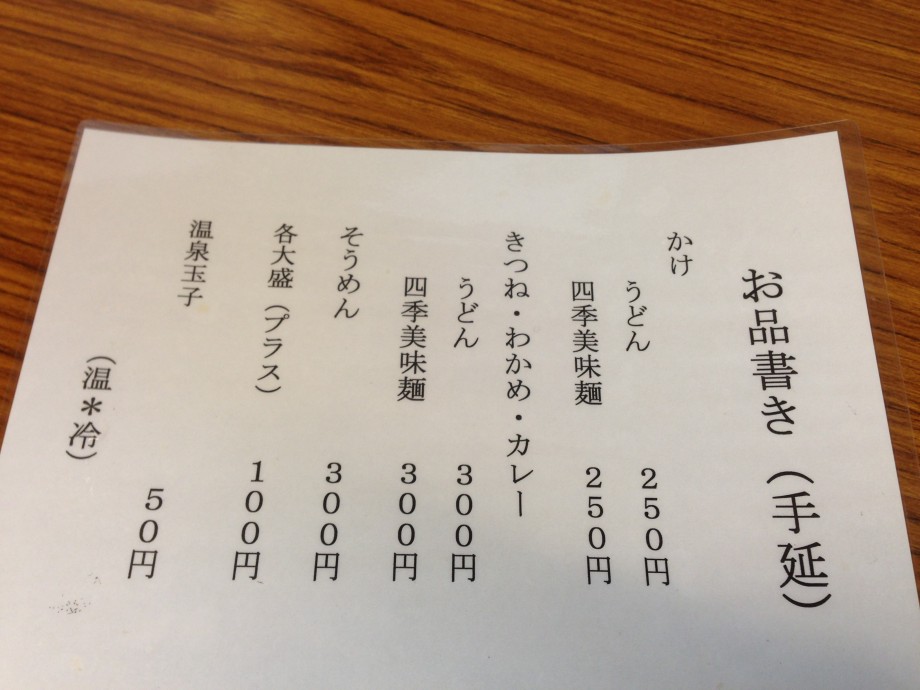 お品書き（手延）
かけ
うどん　２５０円
四季美味麺　２５０円
きつね・わかめ・カレー
うどん　３００円
四季美味麺　３００円
そうめん　３００円
各大盛（プラス）　１００円
温泉玉子　５０円
（温＊冷）